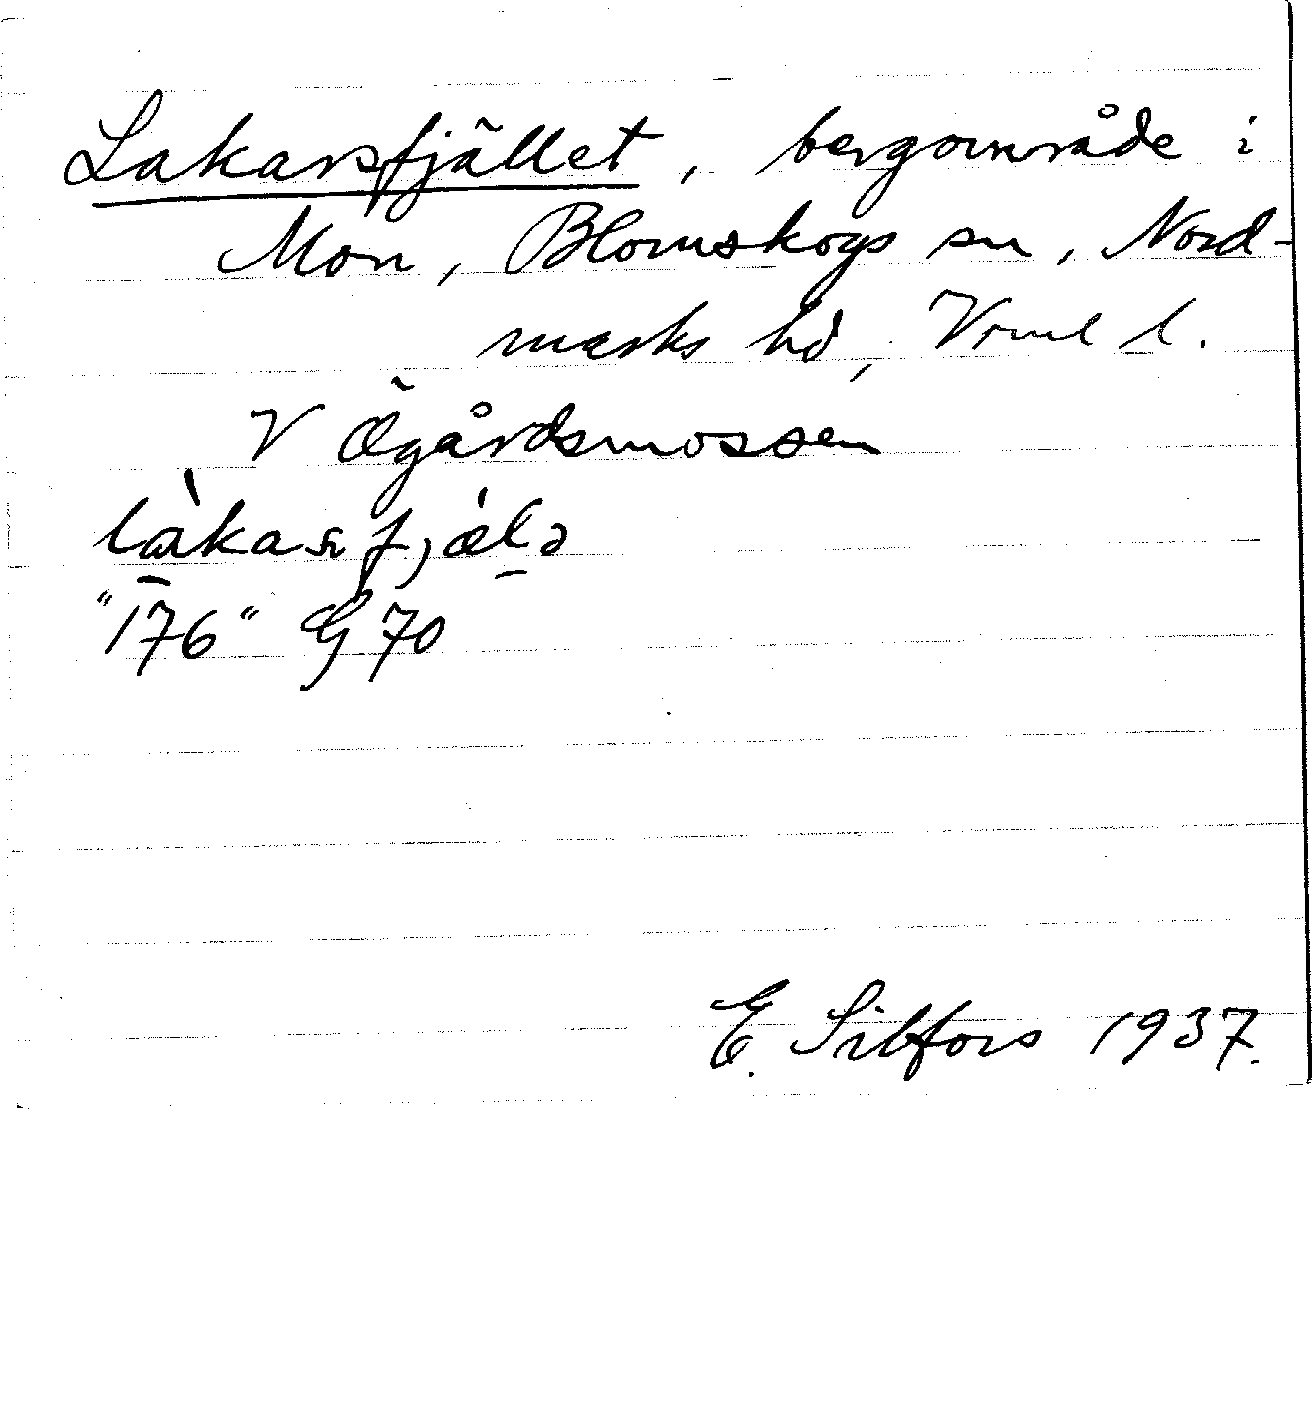 Lakarsfjället, bergområde i
Mon, Blomskogs sn, Nord-
marks hd, Vrml l.
V Ögårdsmossen
"176" G 70
E. Silfors 1937.